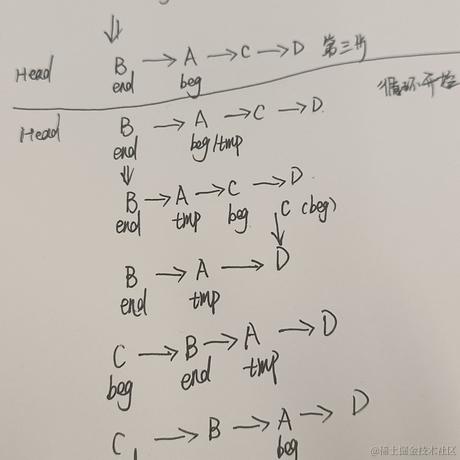 Head B → A → C → D 第三步
end beg
循环开始
Head B → A → C → D
end beg/tmp
B → A → C → D
end tmp beg C (beg)
B → A → D
end tmp
C → B → A → D
beg end tmp
C → B → A → D
beg
@稀土掘金技术社区